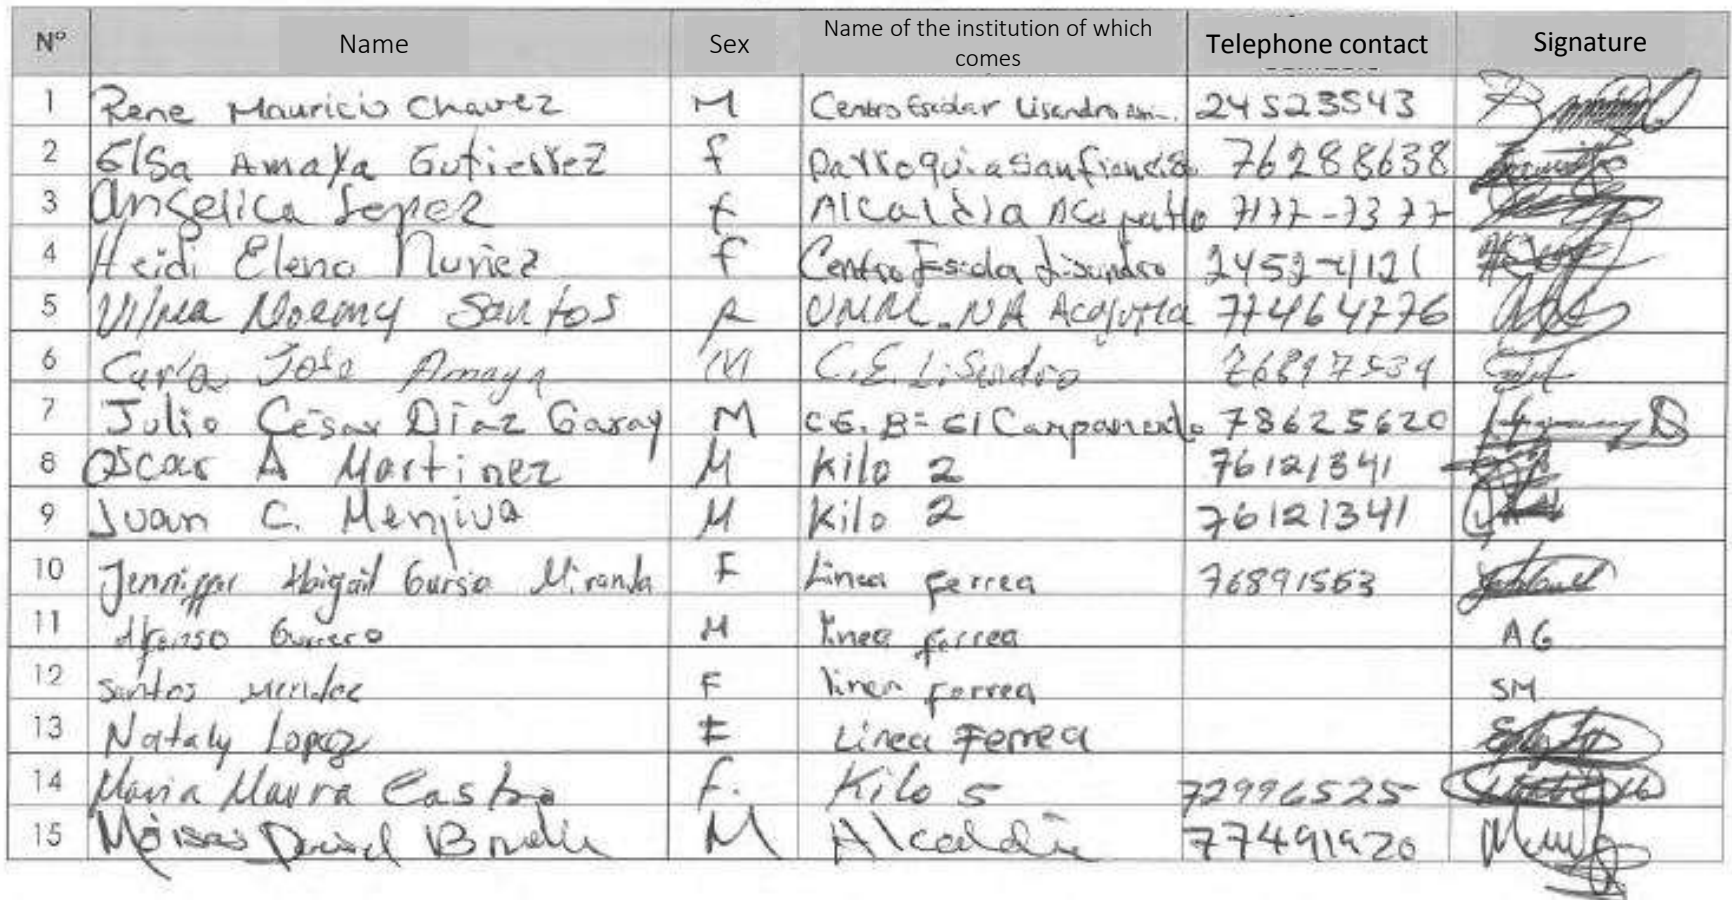 Nº Name Sex Name of the institution of which comes Telephone contact Signature
1 Rene Mauricio Chavez M Centro Escolar Lisandro 24523543
2 Elsa Amaya Gutierrez f Parroquia San francisco 76288638
3 Angelica Lopez f Alcaldia Acajutla 7177-7377
4 Heidi Elena Nuñez f Centro Escolar Lisandro 2452-4121
5 Vilma Noemy Santos F Acajutla 77464776
6 Carlos José Amaya M C.E. Lisandro
7 Julio César Díaz Garay M C.E. Bº El Campamento 78625620
8 Oscar A Martinez M Kilo 2 76121341
9 Juan C. Menjiva M Kilo 2 76121341
10 Jenniffer Abigail Garsia Miranda F Linea ferrea 76891563
11 Alfonso Guerrero M linea ferrea AG
12 Santos Mendez F linea ferrea SM
13 Nataly Lopez F Linea Ferrea
14 Maria Maura Castro f. Kilo 5 72996525
15 Moises David M Alcaldia 77491920